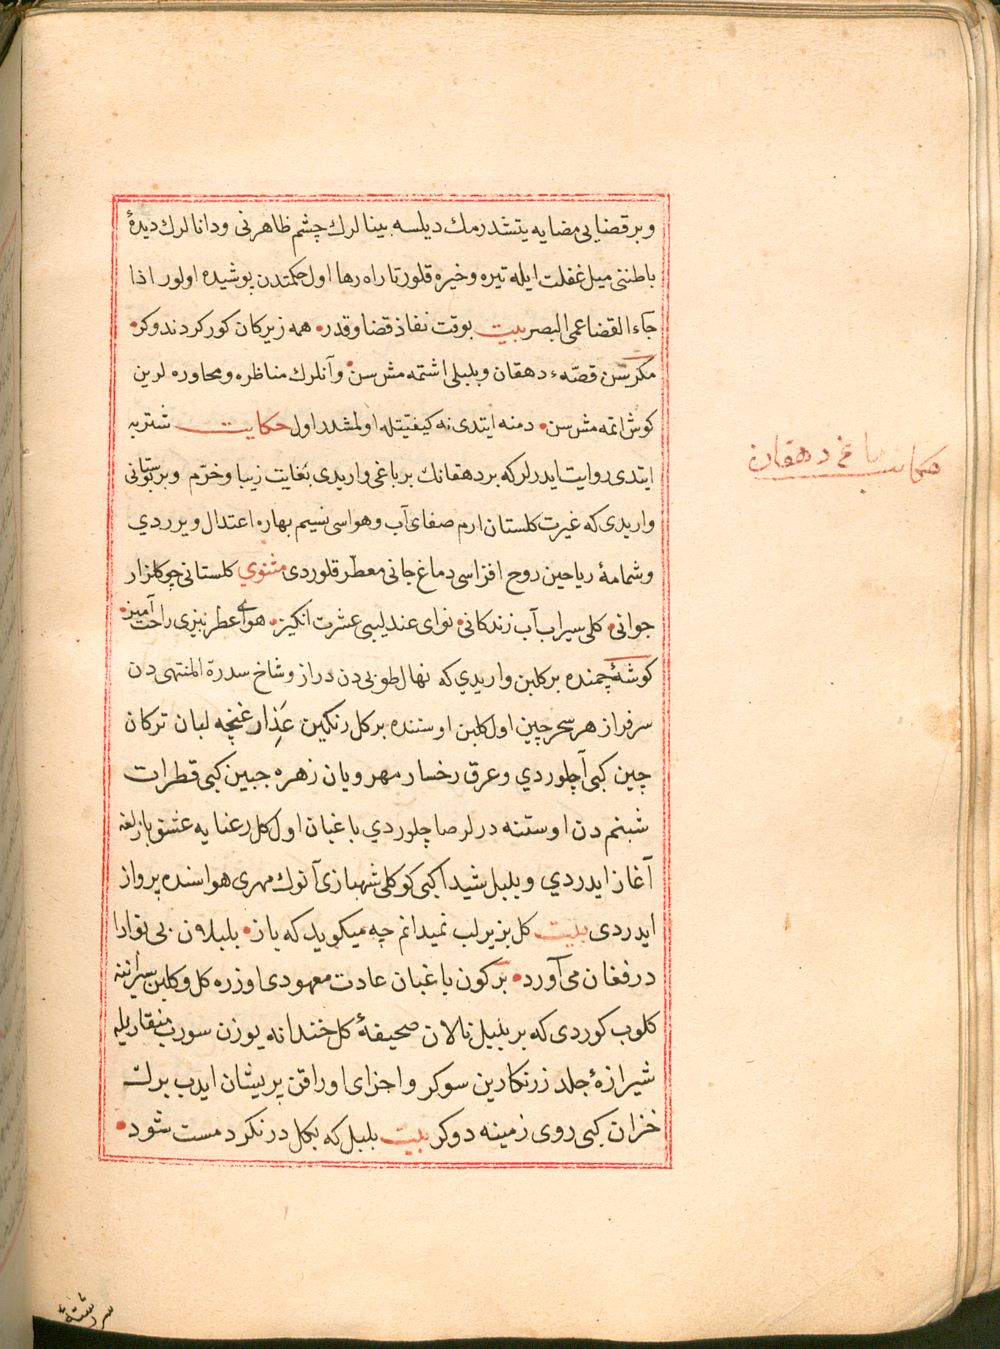 وبر قضایی مضایه یتشدرمك دیلسه بینالرك چشم ظاهرنی ودانالرك دیدهٔ
باطننی میل غفلت ایله تیره وخیره قلور تا راه رها اول حکمتدن پوشیده اولور اذا
جآء القضا عمی البصر بیت بوقت نفاذ قضا وقدر همه زیرکان کور کردند وکر
مکر سن قصّهء دهقان وبلبلی اشتمه مش سن وآنلرك مناظره ومحاوره لرین
کوش اتمه مش سن دمنه ایتدی نه کیفیّتله اولمشدر اول حکایت شتربه
ایتدی روایت ایدرلر که بر دهقانك بر باغی واریدی بغایت زیبا وخرّم وبر بستانی
واریدی که غیرت کلستان ارم صفای آب وهواسی نسیم بهاره اعتدال ویرردی
وشمامهٔ ریاحین روح افزاسی دماغ جانی معطّر قلوردی مثنوي کلستانی چو کلزار
جوانی کلی سیراب آب زندکانی نوای عندلیبی عشرت انکیز هوای عطر بیزی راحت آمیز
کوشهٔ چمنده بر کلبن واریدي که نهال طوبی دن دراز وشاخ سدرة المنتهی دن
سرفراز هر سحر چین اول کلبن اوستنده بر کل رنکین عذار غنچه لبان ترکان
چین کبی آچلوردي وعرق رخسار مهرویان زهره جبین کبی قطرات
شبنم دن اوستنه درلر صاچلوردي باغبان اول کل رعنایه عشق بازلغه
آغاز ایدردي وبلبل شیدا کبی کوکلی شهبازی آنوك مهری هواسنده پرواز
ایدردی بیت کل بزیر لب نمیدانم چه میکوید که باز بلبلان بی نوا را
در فغان می آورد بر کون باغبان عادت معهودی اوزره کل وکلبن سیراننه
کلوب کوردی که بر بلبل نالان صحیفهٔ کل خندانه یوزن سورب منقاریله
شیرازهٔ جلد زرنکارین سوکر واجزای اوراقن پریشان ایدب برك
خزان کبی روی زمینه دوکر بیت بلبل که بکل درنکرد مست شود
حکایت باغ دهقان
سررشتهٔ